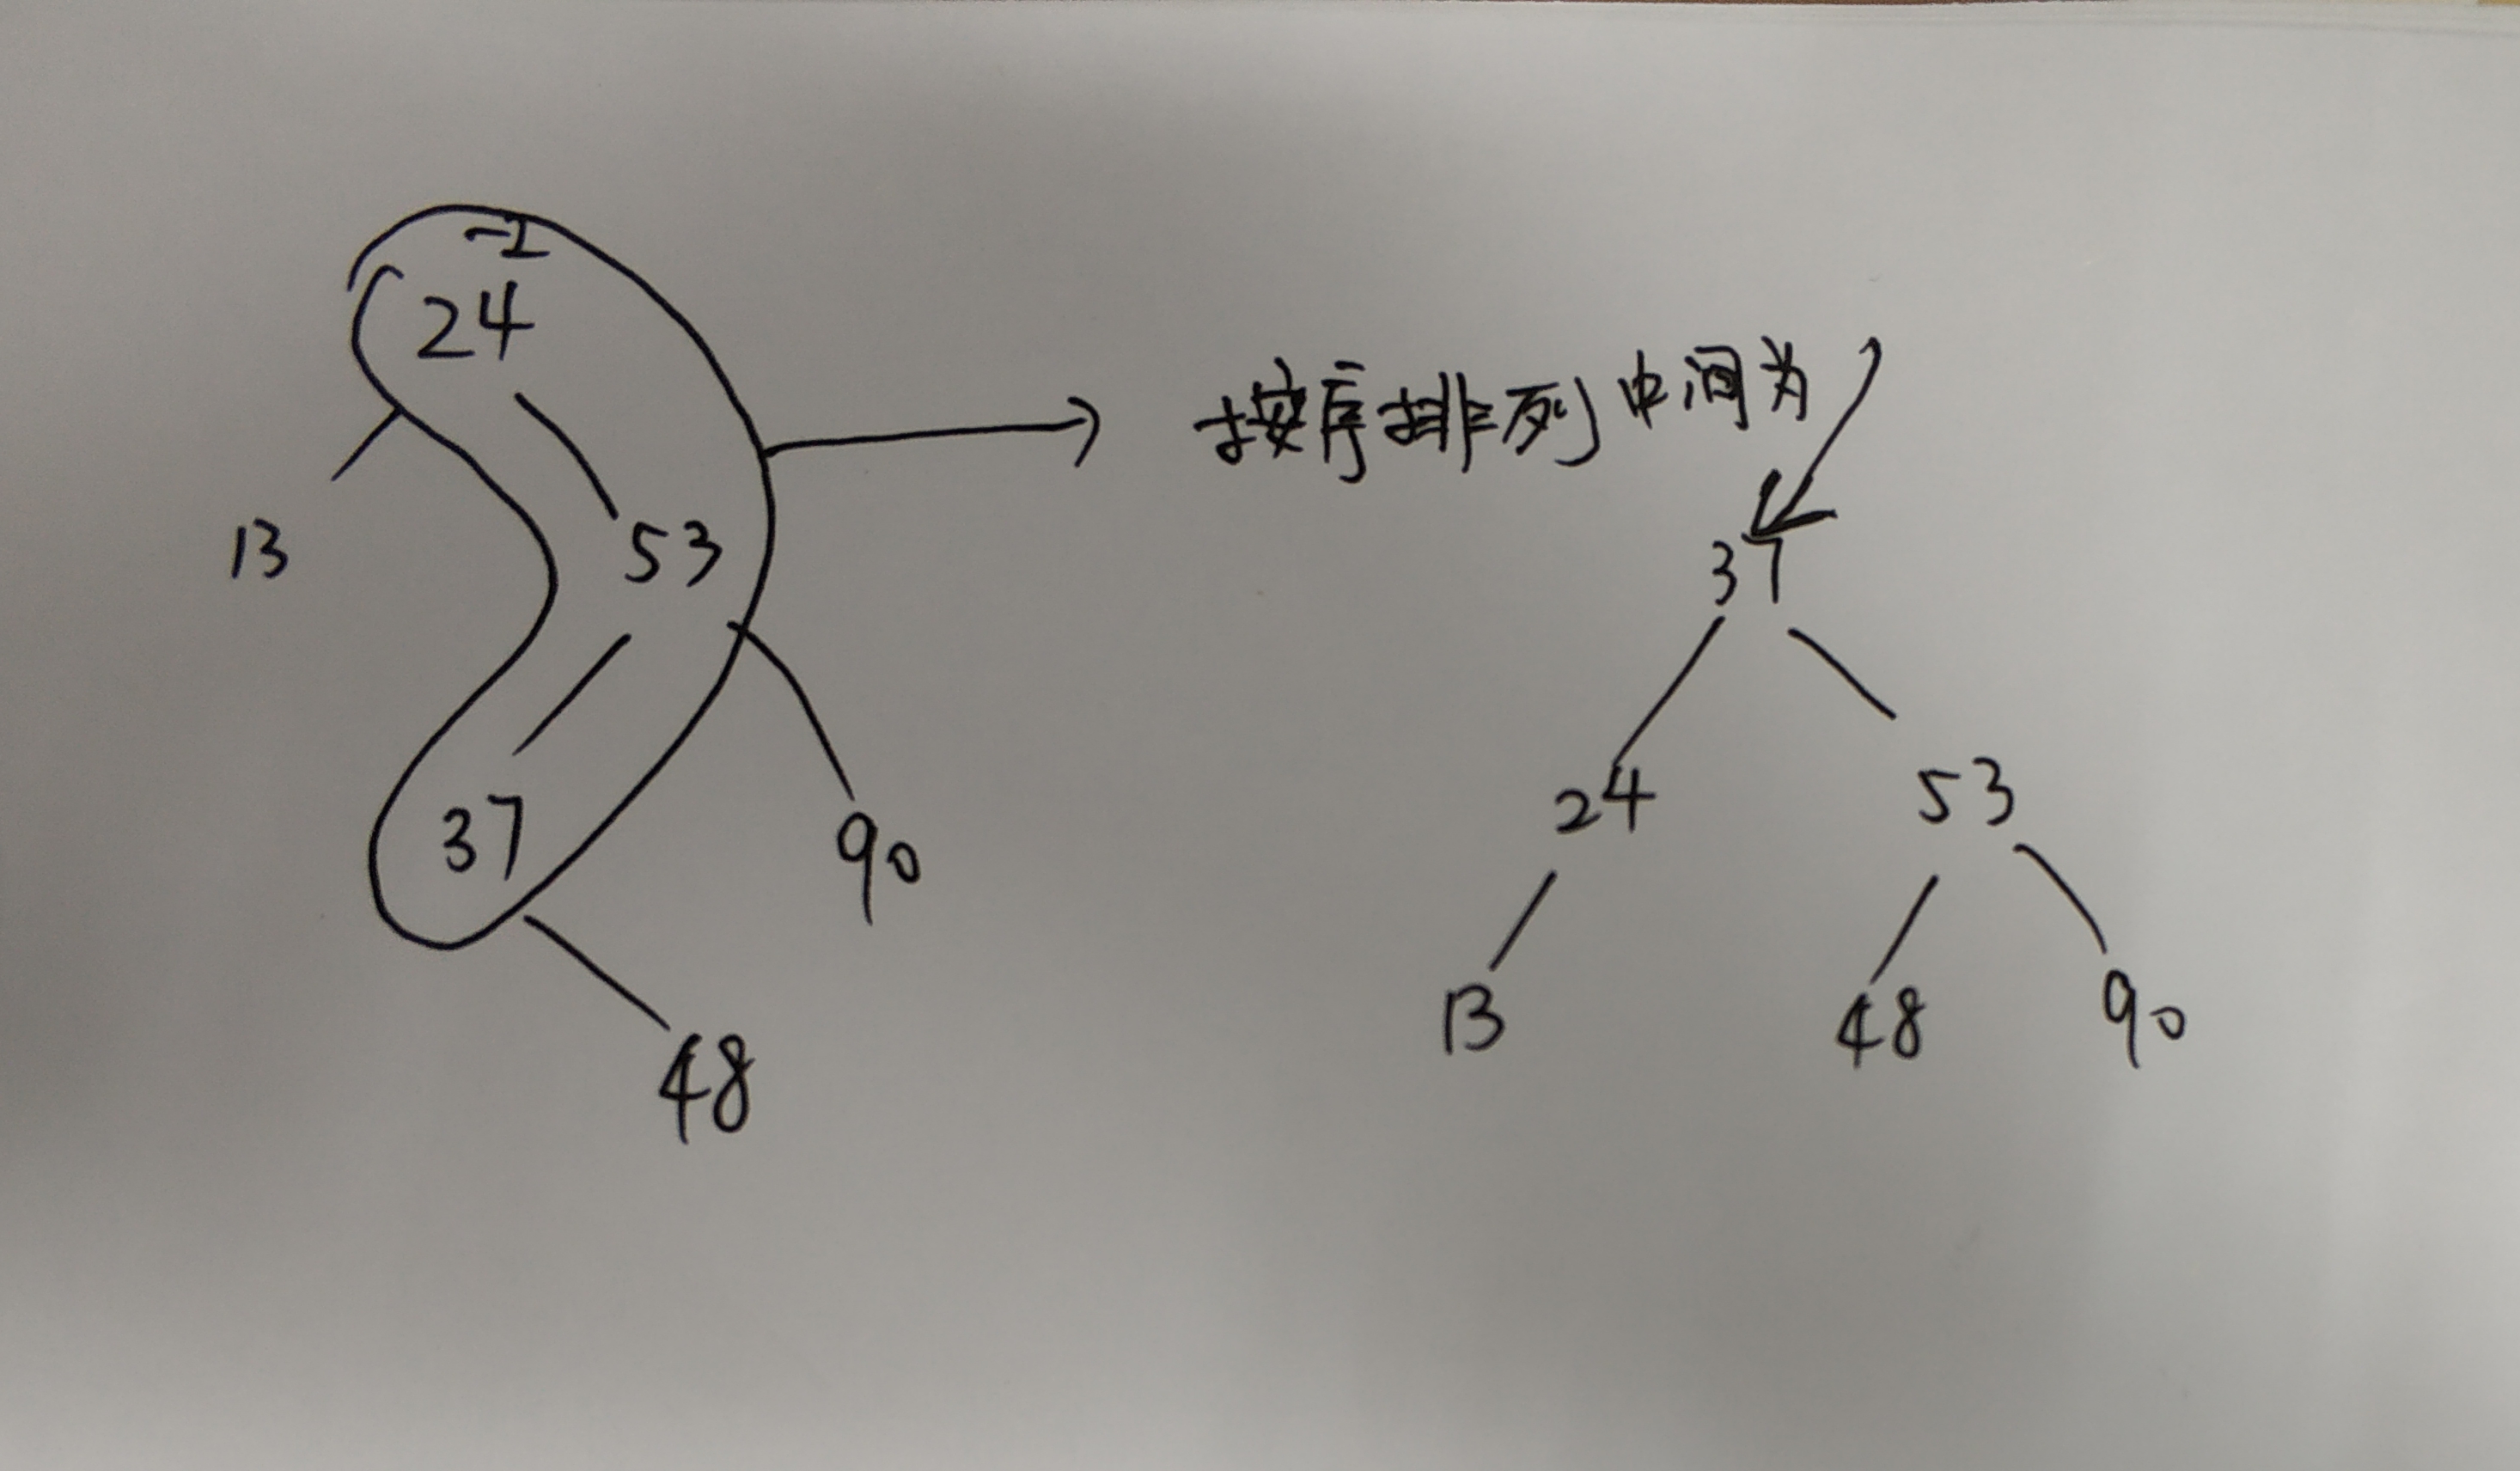 -1
24
13
53
37
90
48
按序排列中间为
37
24 53
13 48 90